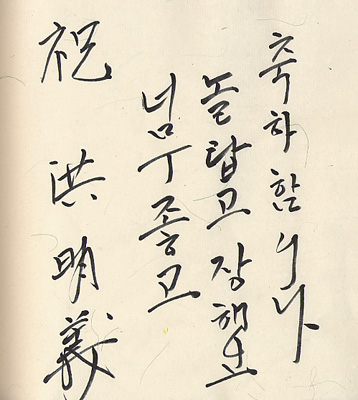 축하함니다
놀랍고 장해요
너무 좋고
祝 洪明義